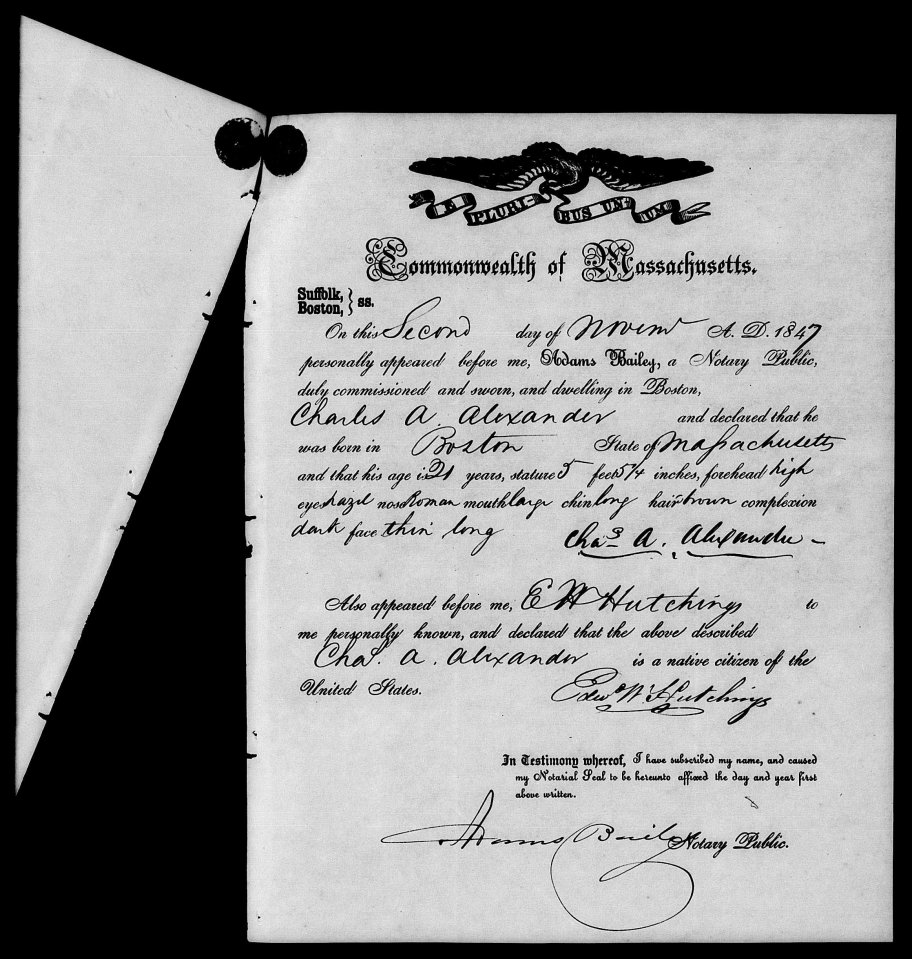 E PLURI- BUS UN- UM
Commonwealth of Massachusetts.
Suffolk,
Boston, } ss.
On this Second day of Novemr A. D. 1847
personally appeared before me, Adams Bailey, a Notary Public,
duly commissioned and sworn, and dwelling in Boston,
Charles A. Alexander and declared that he
was born in Boston State of Massachusetts
and that his age is 21 years, stature 5 feet 5 1/4 inches, forehead high
eyes hazel nose Roman mouth large chin long hair brown complexion
dark face thin long Chas. A. Alexander
Also appeared before me, E W Hutchings to
me personally known, and declared that the above described
Chas. A. Alexander is a native citizen of the
United States. Edwd W. Hutchings
In Testimony whereof, I have subscribed my name, and caused
my Notarial Seal to be hereunto affixed the day and year first
above written.
Adams Bailey Notary Public.